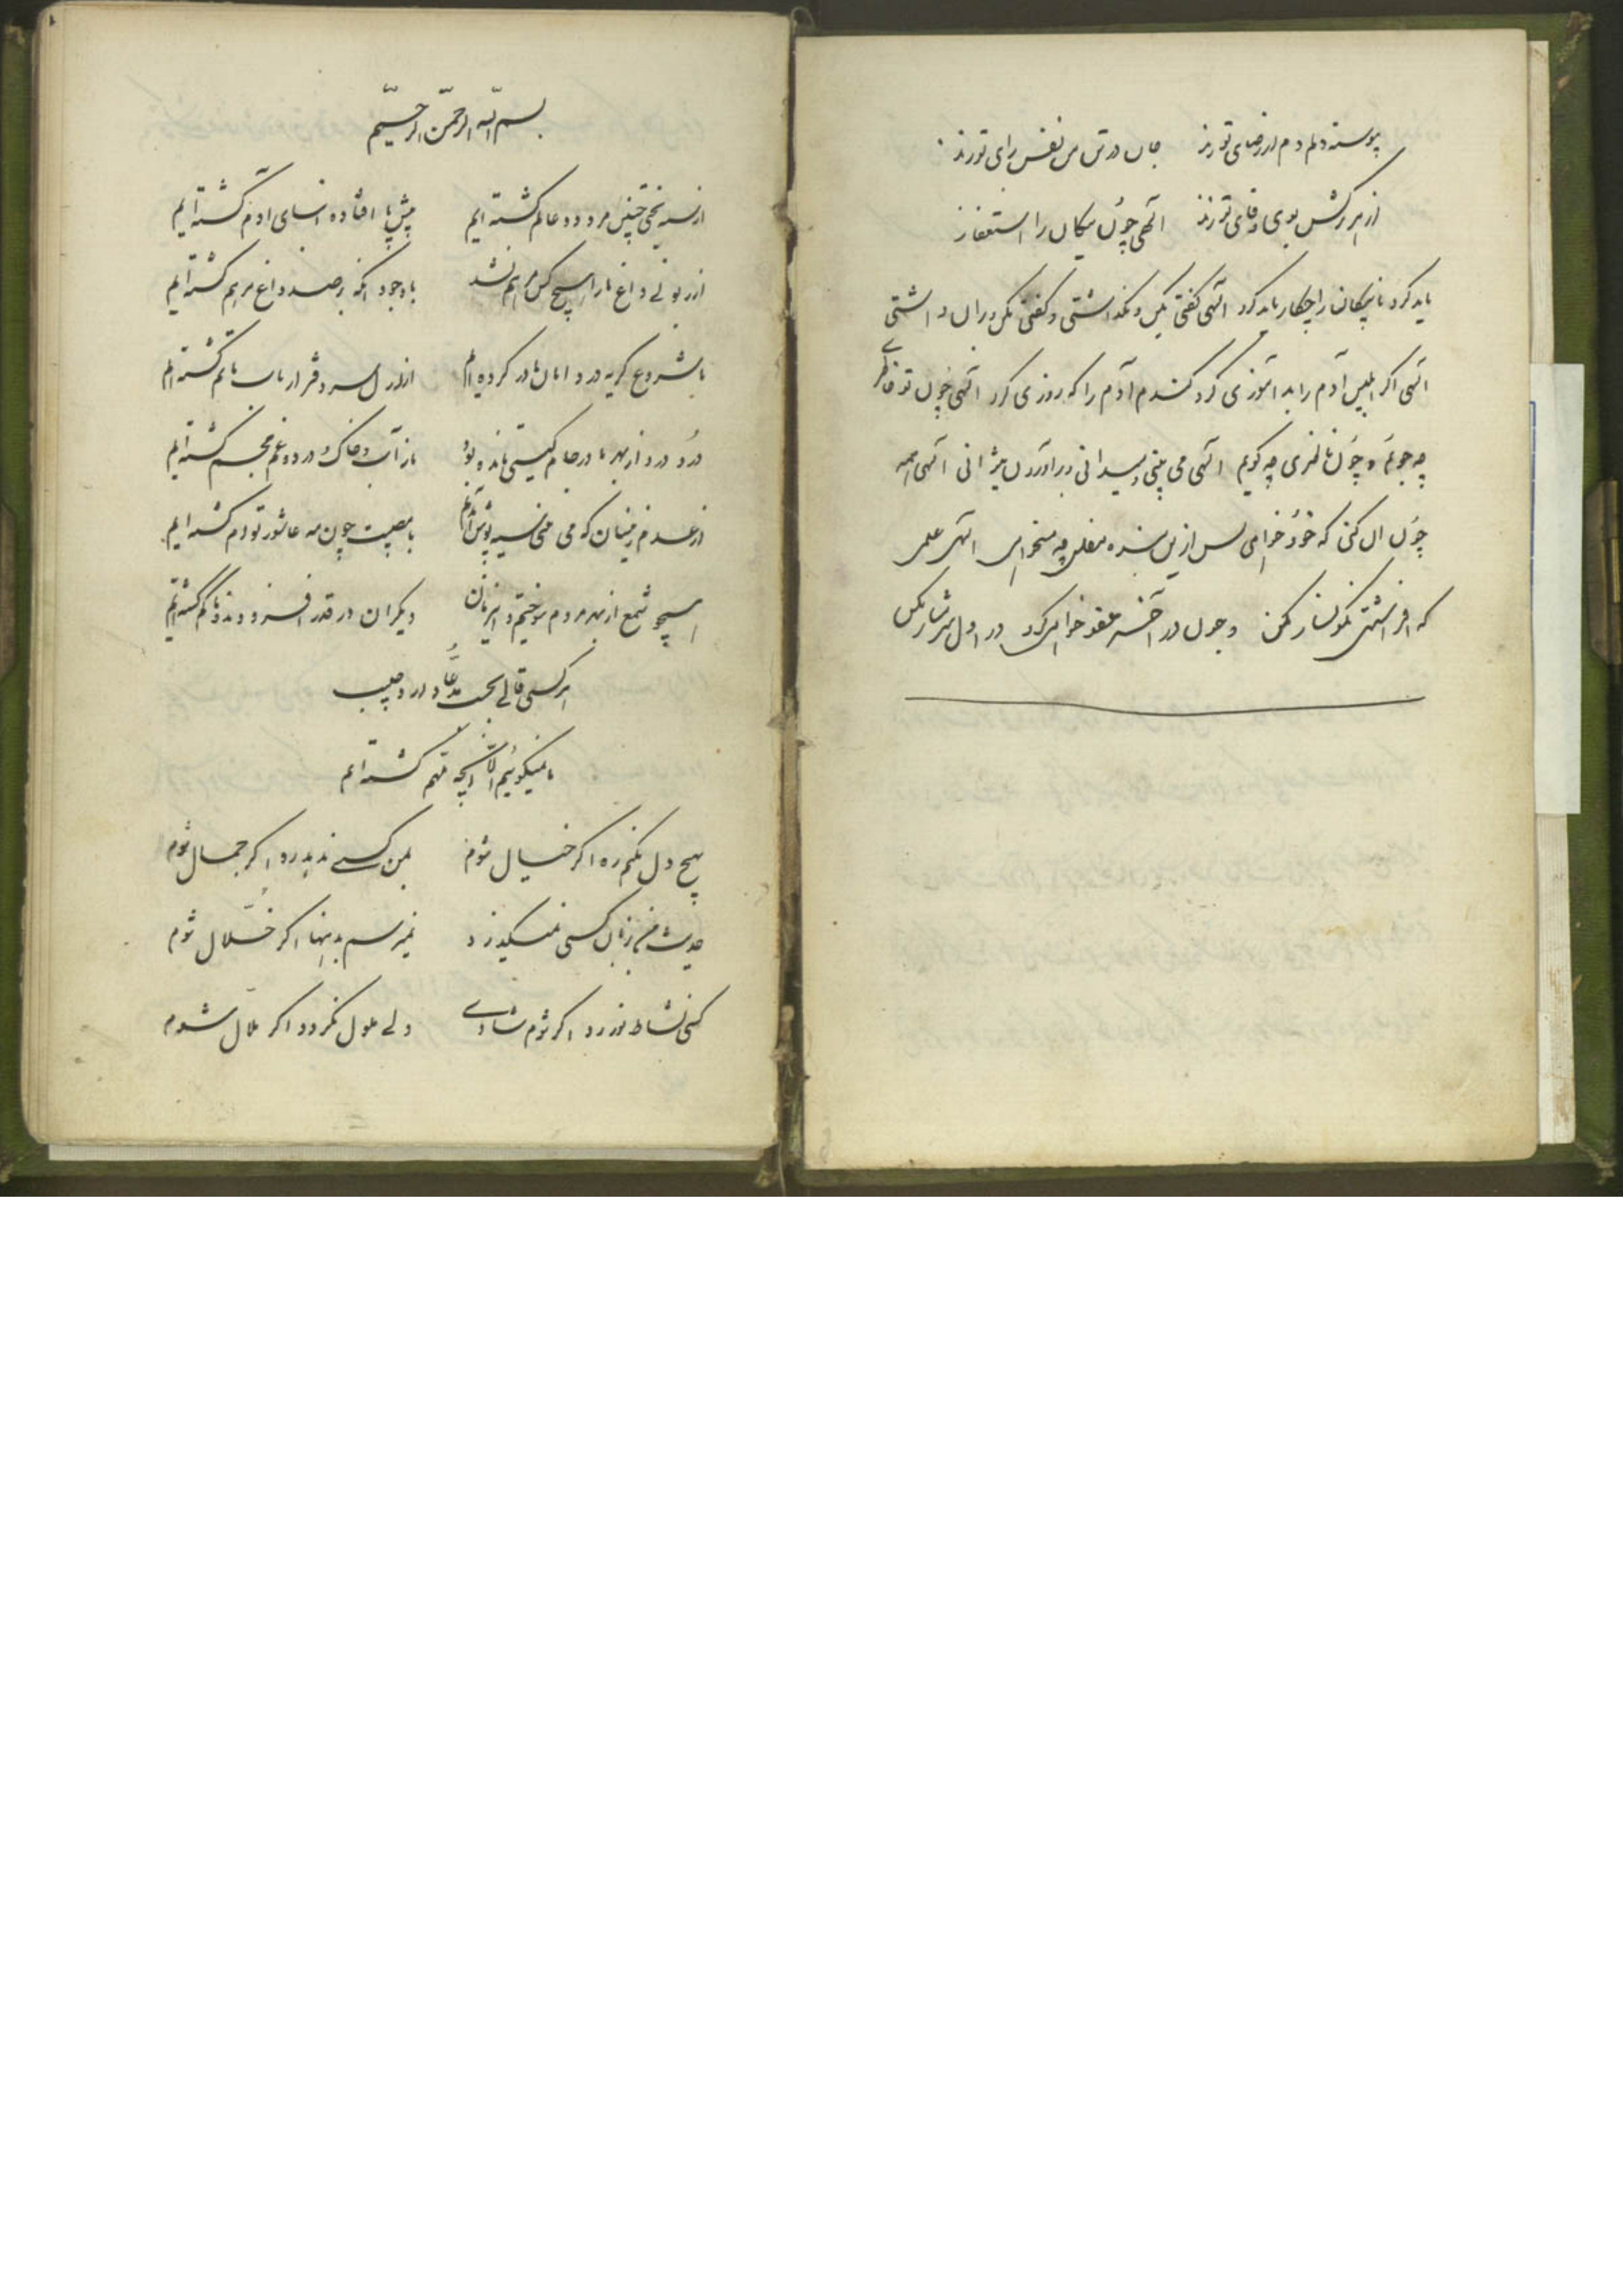 پیوسته دلم دم از رضای تو زند جان در تن من نفس برای تو زند
الهی چون نیکان را استغفار
باید کرد نانیکان را چکار باید کرد الهی گفتی بکن و نگذاشتی و گفتی مکن و بران داشتی
الهی اگر ابلیس آدم را بد آموزی کرد گندم آدم را که روزی کرد الهی چون تو حاضری
چه جویم و چون ناظری چه گویم الهی می بینی و میدانی و برآوردن میتوانی الهی همه
چون آن کنی که خود خواهی پس ازین بنده مفلس چه میخواهی الهی علمی
که افراشتی نگونسار مکن و چون در آخر عفو خواهی کرد در اول شرمسار مکن
بسم الله الرحمن الرحیم
از سیه بختی چنین مردود عالم گشته ایم پیش پا افتاده انسای آدم گشته ایم
از زبونی داغ ما را هیچ کس مرهم نشد باوجود آنکه بر صد داغ مرهم گشته ایم
ما شروع گریه در دامان مادر کرده ایم از ازل سر دفتر ارباب ماتم گشته ایم
درد درد از بهر ما در جام گیتی مانده بود ما ز آب و خاک درد و غم مجسم گشته ایم
همچو شمع از بهر مردم سوختیم و این زمان دیگران در قدر افزودند و ما کم گشته ایم
هر کسی قالی بحسب مدعا دارد
ما نمیگوییم الا آنچه ملهم گشته ایم
بهیچ دل نکنم ره اگر خیال شوم بمن کسی ندهد رو اگر جمال شوم
حدیث من بزبان کسی نمیگذرد نمیرسم بدهنها اگر خلال شوم
کسی نشاط نورزد اگر شوم شادی دلی ملول نگردد اگر ملال شوم